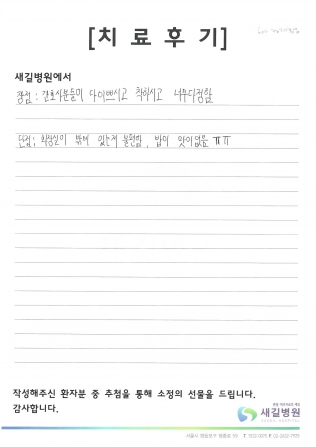 [치 료 후 기]
새길병원에서
장점 : 간호사분들이 다 이쁘시고 착하시고 너무다정함
단점 : 화장실이 밖에 있는게 불편함, 밥이 맛이없음 ㅠㅠ
작성해주신 환자분 중 추첨을 통해 소정의 선물을 드립니다.
감사합니다.
새길병원